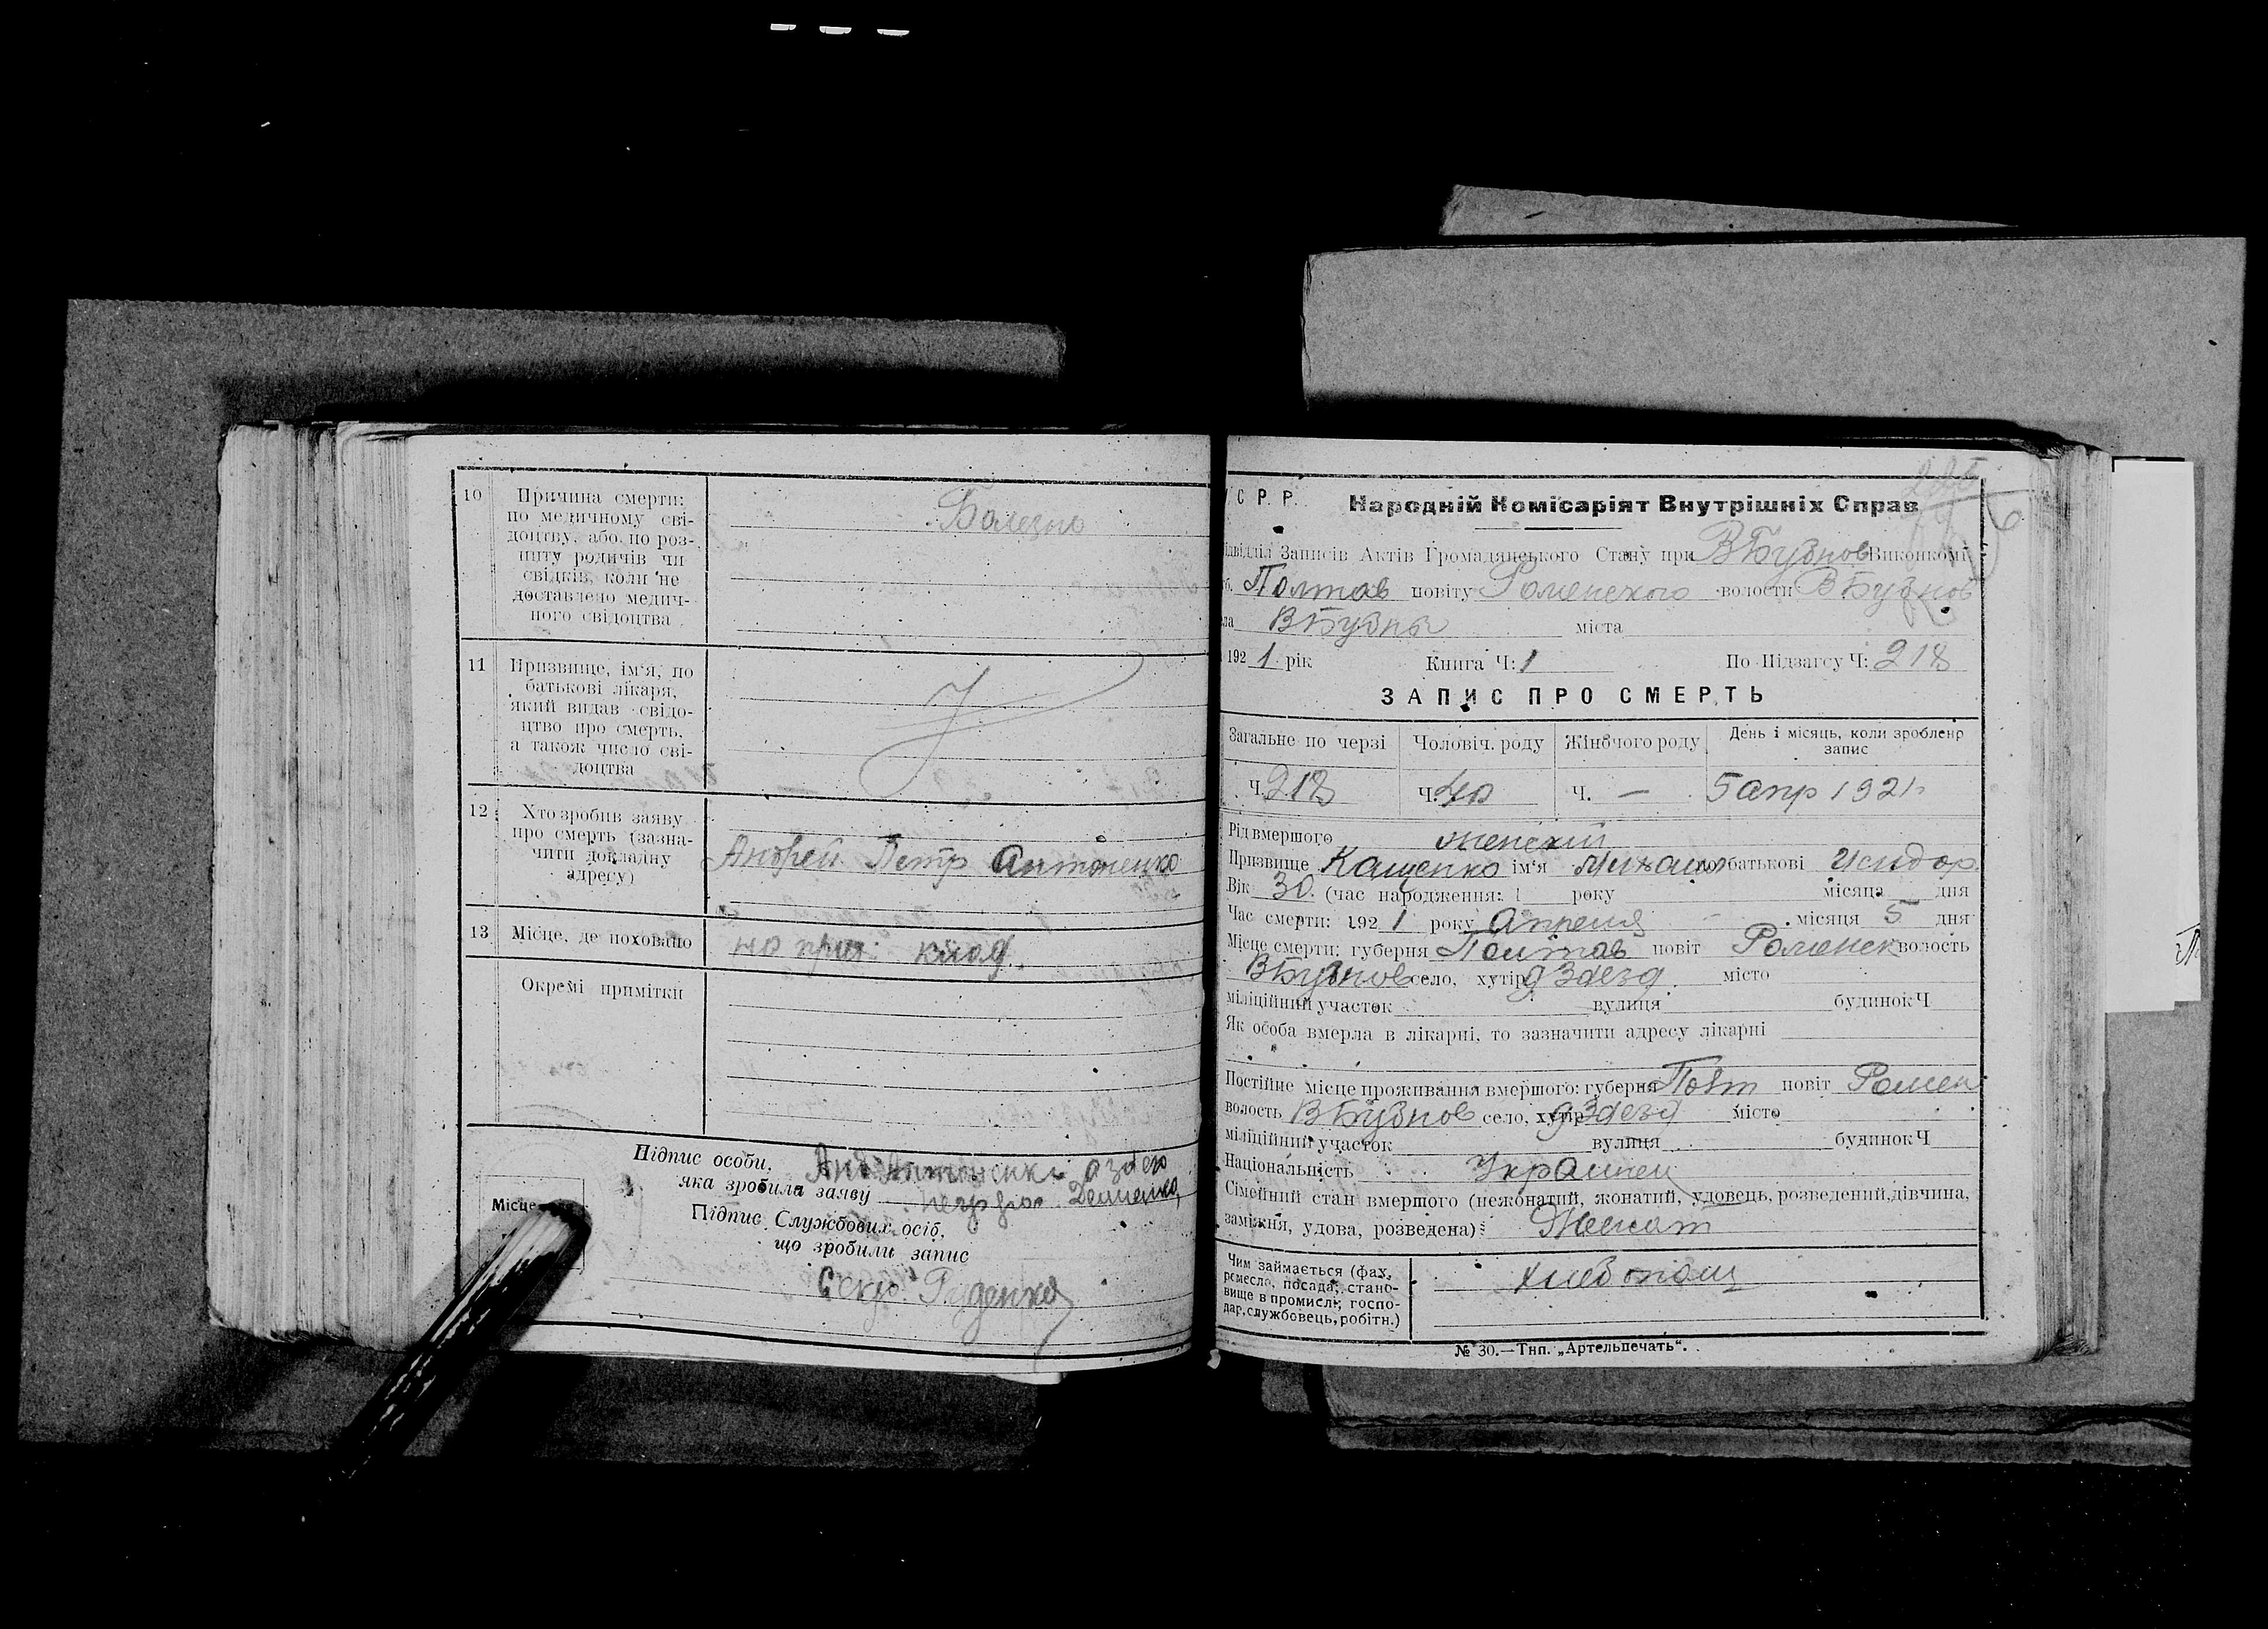 10 Причина смерти:
по медичному сві-
доцтву, або по роз-
питу родичів чи
свідків, коли не
доставлено медич-
ного свідоцтва
Болезнь
11 Призвище, ім'я, по
батькові лікаря,
який видав свідо-
цтво про смерть,
а також число сві-
доцтва
12 Хто зробив заяву
про смерть (зазна-
чити докладну
адресу)
Андрей Петр Антоненко
13 Місце, де поховано
на прих. клад.
Окремі примітки
Підпис особи,
яка зробила заяву
Анд Антоненко а за его
неграм Деменко
Місце
Підпис Службових осіб,
що зробили запис
Секр. Руденко
С Р. Р.
Народній Комісаріят Внутрішніх Справ
Записів Актів Громадянського Стану при ВБубнов Виконкомі
Полтав повіту Роменского волости ВБубнов
ВБубны міста
192 1 рік Книга Ч: 1 По Підзагсу Ч: 218
ЗАПИС ПРО СМЕРТЬ
Загальне по черзі Чоловіч. роду Жіночого роду День і місяць, коли зроблено
запис
Ч. 218 Ч. Ч. — 5 апр 1921 г
Рід вмершого
Призвище Кащенко ім'я Михаил по батькові Исидор.
Вік 30 (час народження: 1 року місяця дня
Час смерти: 192 1 року Апреля місяця 5 дня
Місце смерти: губерня Полтав повіт Роменск волость
ВБубнов село, хутір місто
міліційний участок вулиця будинок Ч
Як особа вмерла в лікарні, то зазначити адресу лікарні
Постійне місце проживання вмершого: губерня Полт повіт Ромен
волость ВБубнов село, хутір місто
міліційний участок вулиця будинок Ч
Національність Украинец
Сімейний стан вмершого (нежонатий, жонатий, удовець, розведений, дівчина,
заміжня, удова, розведена): Женат
Чим займається (фах,
ремесло, посада, стано-
вище в промислі; госпо-
дар, службовець, робітн.)
Хлебопаш
№ 30.—Тип. „Артельпечать“.